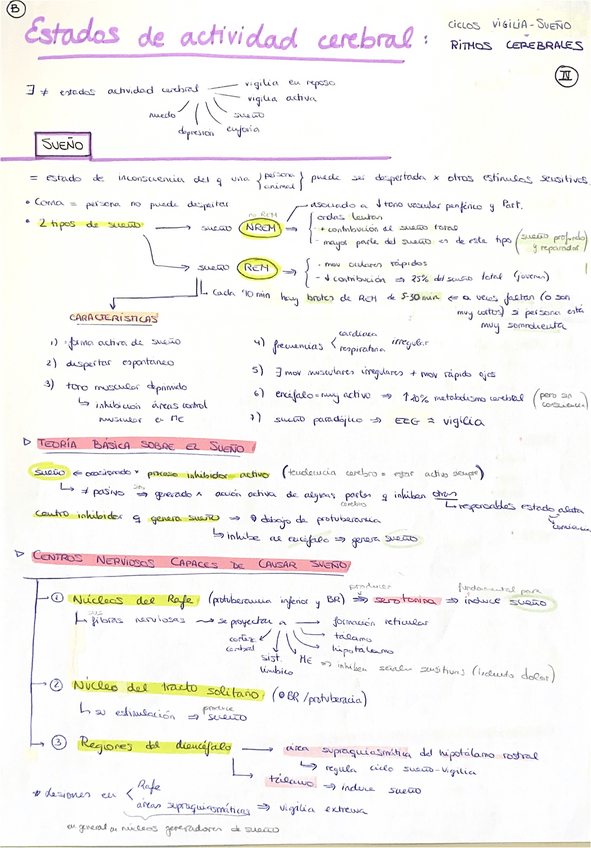 B
Estados de actividad cerebral:
CICLOS VIGILIA-SUEÑO
RITMOS CEREBRALES
IV
∃ ≠ estados actividad cerebral
vigilia en reposo
vigilia activa
sueño
euforia
depresión
miedo
SUEÑO
= estado de inconsciencia del q una { persona animal } puede ser despertada x otros estímulos sensitivos.
• Coma = persona no puede despertar
• 2 tipos de sueño → sueño NREM →
no REM
asociado a ↓ tono vascular periférico y Part.
ondas lentas
+ contribución al sueño total
mayor parte del sueño es de este tipo (sueño profundo y reparador)
sueño REM →
- mov oculares rápidos
- ↓ contribución ⇒ 25% del sueño total (jóvenes)
Cada 90 min hay brotes de REM de 5-30 min ⇐ a veces faltan (o son muy cortos) si persona está muy somnolienta
CARACTERÍSTICAS
1) forma activa de sueño
2) despertar espontáneo
3) tono muscular deprimido
↳ inhibición áreas control muscular en ME
4) frecuencias < cardíaca respiratoria irregular
5) ∃ mov musculares irregulares + mov rápido ojos
6) encéfalo = muy activo ⇒ ↑20% metabolismo cerebral (pero sin consciencia)
7) sueño paradójico ⇒ EEG = vigilia
▷ TEORÍA BÁSICA SOBRE EL SUEÑO
sueño ← ocasionado x proceso inhibidor activo (tendencia cerebro = estar activo siempre)
↳ ≠ pasivo ⇒ generado x acción activa de algunas partes cerebro q inhiben otras
↳ responsables estado alerta y consciencia
centro inhibidor q genera sueño ⇒ debajo de protuberancia
↳ inhibe al encéfalo ⇒ genera sueño
▷ CENTROS NERVIOSOS CAPACES DE CAUSAR SUEÑO
→ ① Núcleos del Rafe (protuberancia inferior y BR) ⇒ serotonina ⇒ induce sueño
producen
fundamental para
↳ sus fibras nerviosas → se proyectan a
formación reticular
tálamo
hipotálamo
ME ⇒ inhiben señales sensitivas (incluido dolor)
sist. límbico
corteza cerebral
→ ② Núcleo del tracto solitario (BR/protuberancia)
↳ su estimulación ⇒ sueño
produce
→ ③ Regiones del diencéfalo → área supraquiasmática del hipotálamo rostral
↳ regula ciclo sueño-vigilia
tálamo ⇒ induce sueño
* Lesiones en < Rafe
áreas supraquiasmáticas ⇒ vigilia extrema
en general en núcleos generadores de sueño